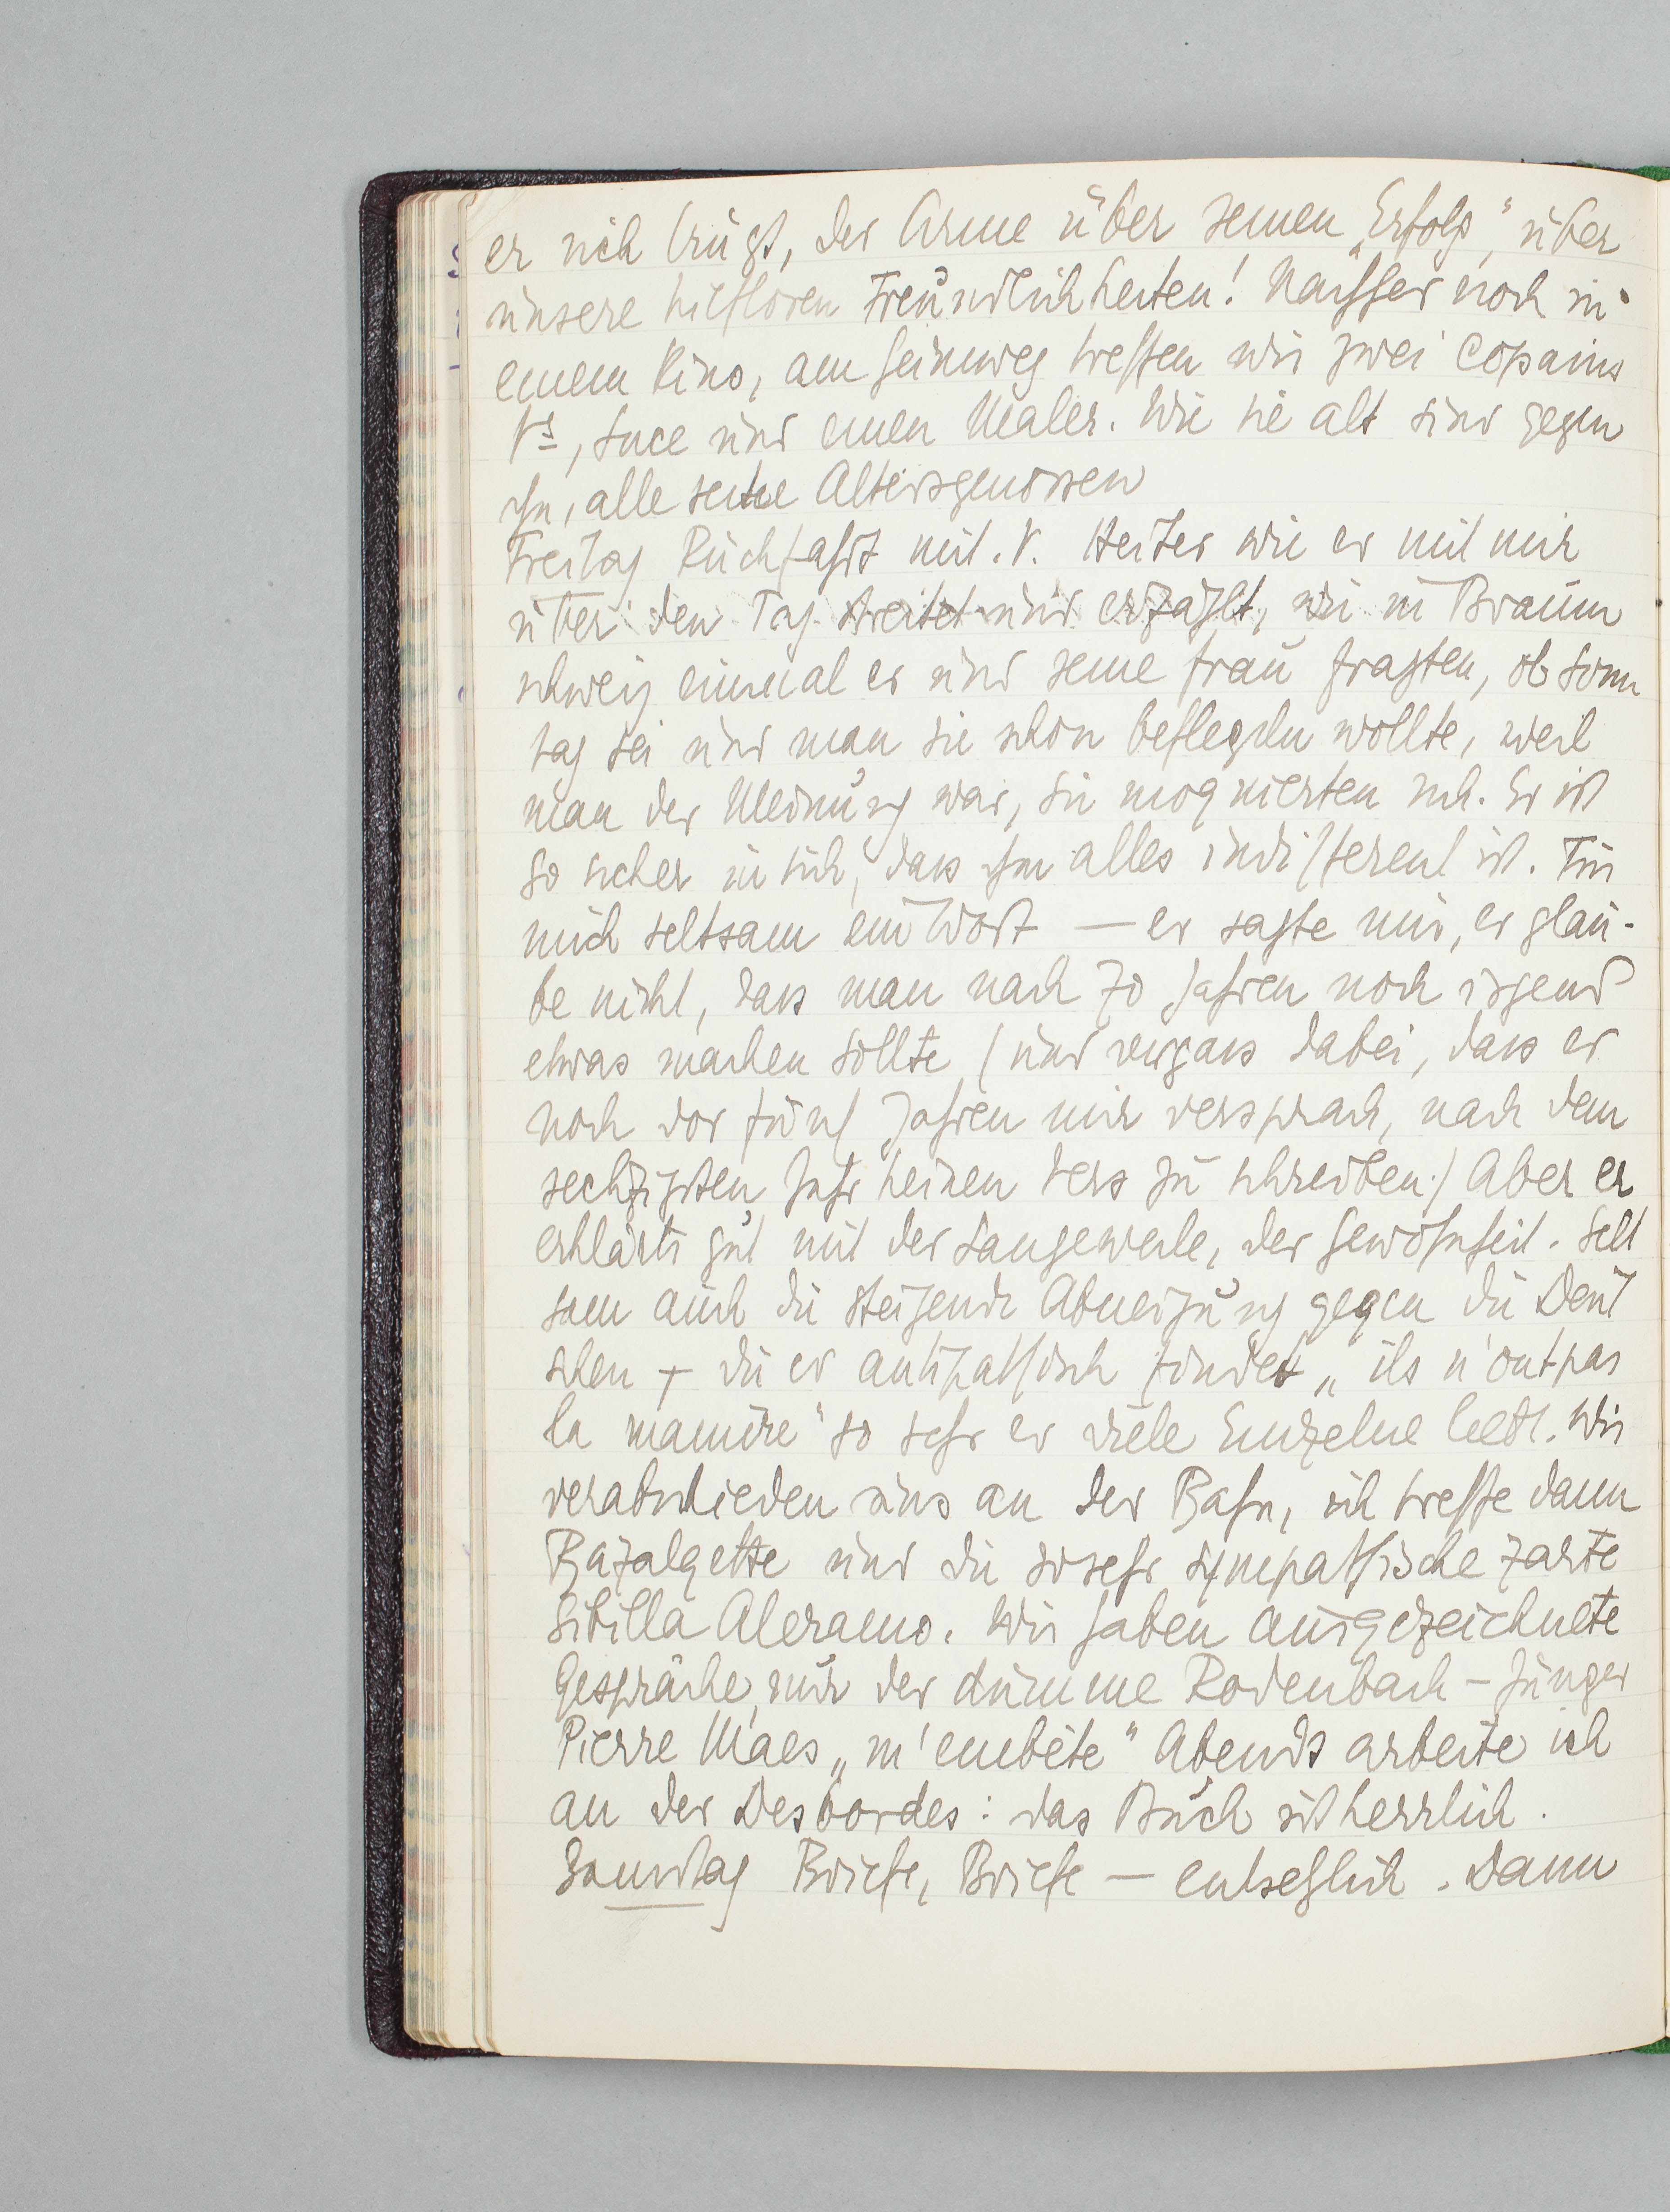 er sich trügt, der Arme über seinen „Erfolg", über
unsere hilflosen Freundlichkeiten! Nachher noch in
einem Kino, am Heimweg treffen wir zwei Copains
Vs, Luce und einen Maler. Wie sie alt sind gegen
ihn, alle seine Altersgenossen
Freitag Rückfahrt mit V. Heiter wie er mit mir
über den Tag streitet und erzählt, wie in Braun
schweig einmal er und seine Frau fragten, ob Sonn
tag sei und man sie schon beflegeln wollte, weil
man der Meinung war, sie moquierten sich. Er ist
so sicher in sich, dass ihm alles indifferent ist. Für
mich seltsam ein Wort — er sagte mir, er glau-
be nicht, dass man nach 70 Jahren noch irgend
etwas machen sollte (und vergass dabei, dass er
noch vor fünf Jahren mir versprach, nach dem
sechzigsten Jahr keinen Vers zu schreiben.) Aber er
erklärts gut mit der Langeweile, der Gewohnheit. Selt
sam auch die steigende Abneigung gegen die Deut
schen – die er antipathisch findet „ils n'ont pas
la manière" so sehr er viele Einzelne liebt. Wir
verabschieden uns an der Bahn, ich treffe dann
Bazalgette und die so sehr sympathische zarte
Sibilla Aleramo. Wir haben ausgezeichnete
Gespräche, nur der dumme Rodenbach-Jünger
Pierre Maes „m'embête" Abends arbeite ich
an der Desbordes: das Buch ist herrlich.
Samstag Briefe, Briefe — entsetzlich. Dann